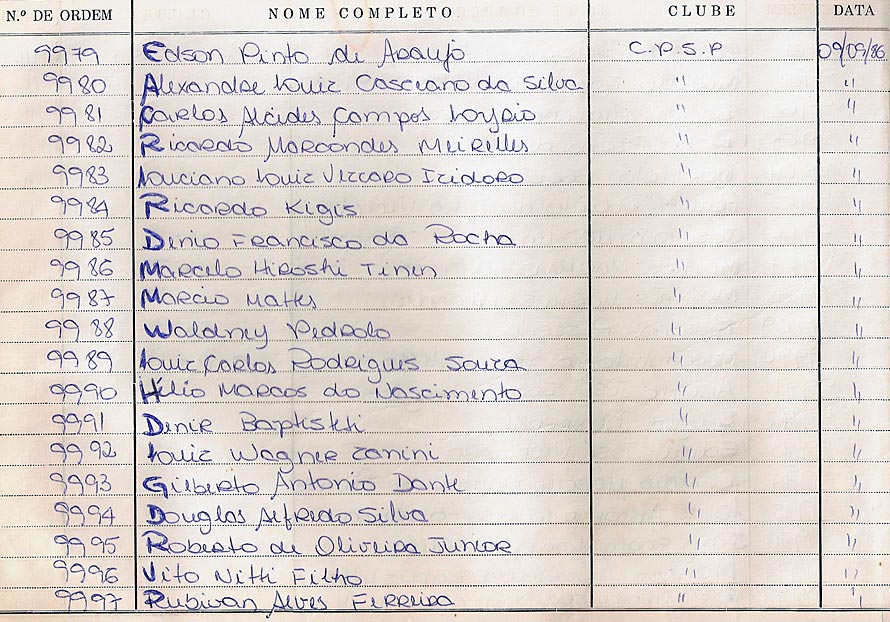 N.º DE ORDEM NOME COMPLETO CLUBE DATA
9979 Edson Pinto de Araujo C.P.S.P 09/09/86
9980 Alexandre Luiz Casciano da Silva " "
9981 Carlos Alcides Campos Loyrio " "
9982 Ricardo Marcondes Meirelles " "
9983 Luciano Luiz Vizzaro Izidoro " "
9984 Ricardo Kigis " "
9985 Denio Francisco da Rocha " "
9986 Marcelo Hiroshi Tinen " "
9987 Marcio Mattes " "
9988 Waldney Pedrolo " "
9989 Luiz Carlos Rodrigues Souza " "
9990 Hélio Marcos do Nascimento " "
9991 Denir Baptistti " "
9992 Luiz Wagner Zanini " "
9993 Gilberto Antonio Dante " "
9994 Douglas Alfredo Silva " "
9995 Roberto de Oliveira Junior " "
9996 Vito Nitti Filho " "
9997 Rubivan Alves Ferreira " "